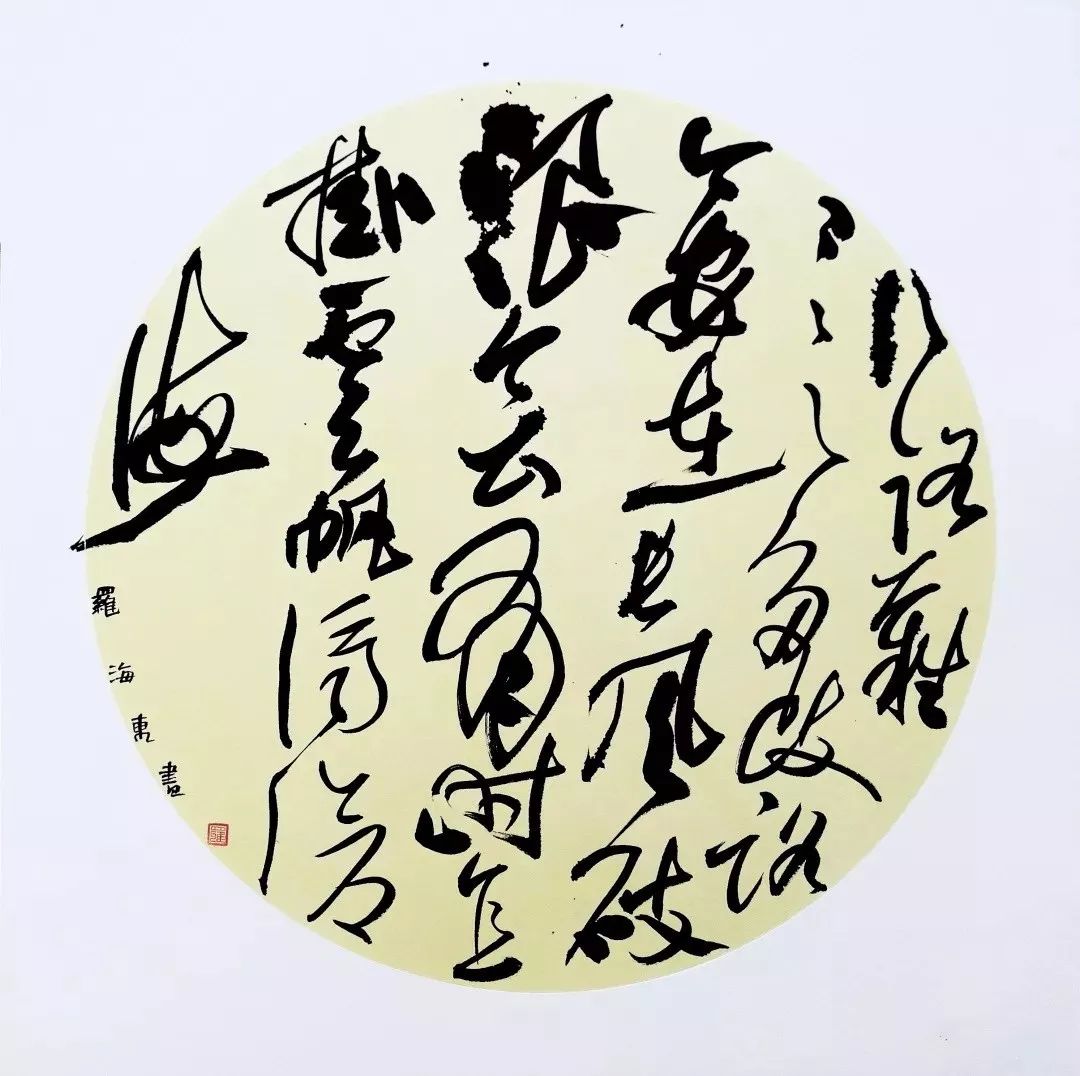 行路難
〻〻〻多歧路
今安在長風破
浪会有时直
掛雲帆濟滄
海
羅海東書